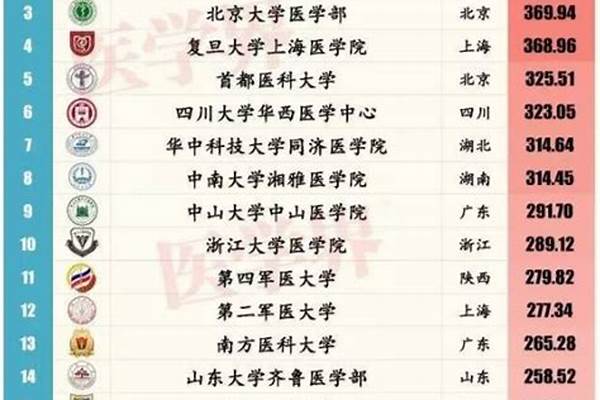 3 北京大学医学部 北京 369.94
4 复旦大学上海医学院 上海 368.96
5 首都医科大学 北京 325.51
6 四川大学华西医学中心 四川 323.05
7 华中科技大学同济医学院 湖北 314.64
8 中南大学湘雅医学院 湖南 314.45
9 中山大学中山医学院 广东 291.70
10 浙江大学医学院 浙江 289.12
11 第四军医大学 陕西 279.82
12 第二军医大学 上海 277.34
13 南方医科大学 广东 265.28
14 山东大学齐鲁医学部 山东 258.52
医学界
医学界